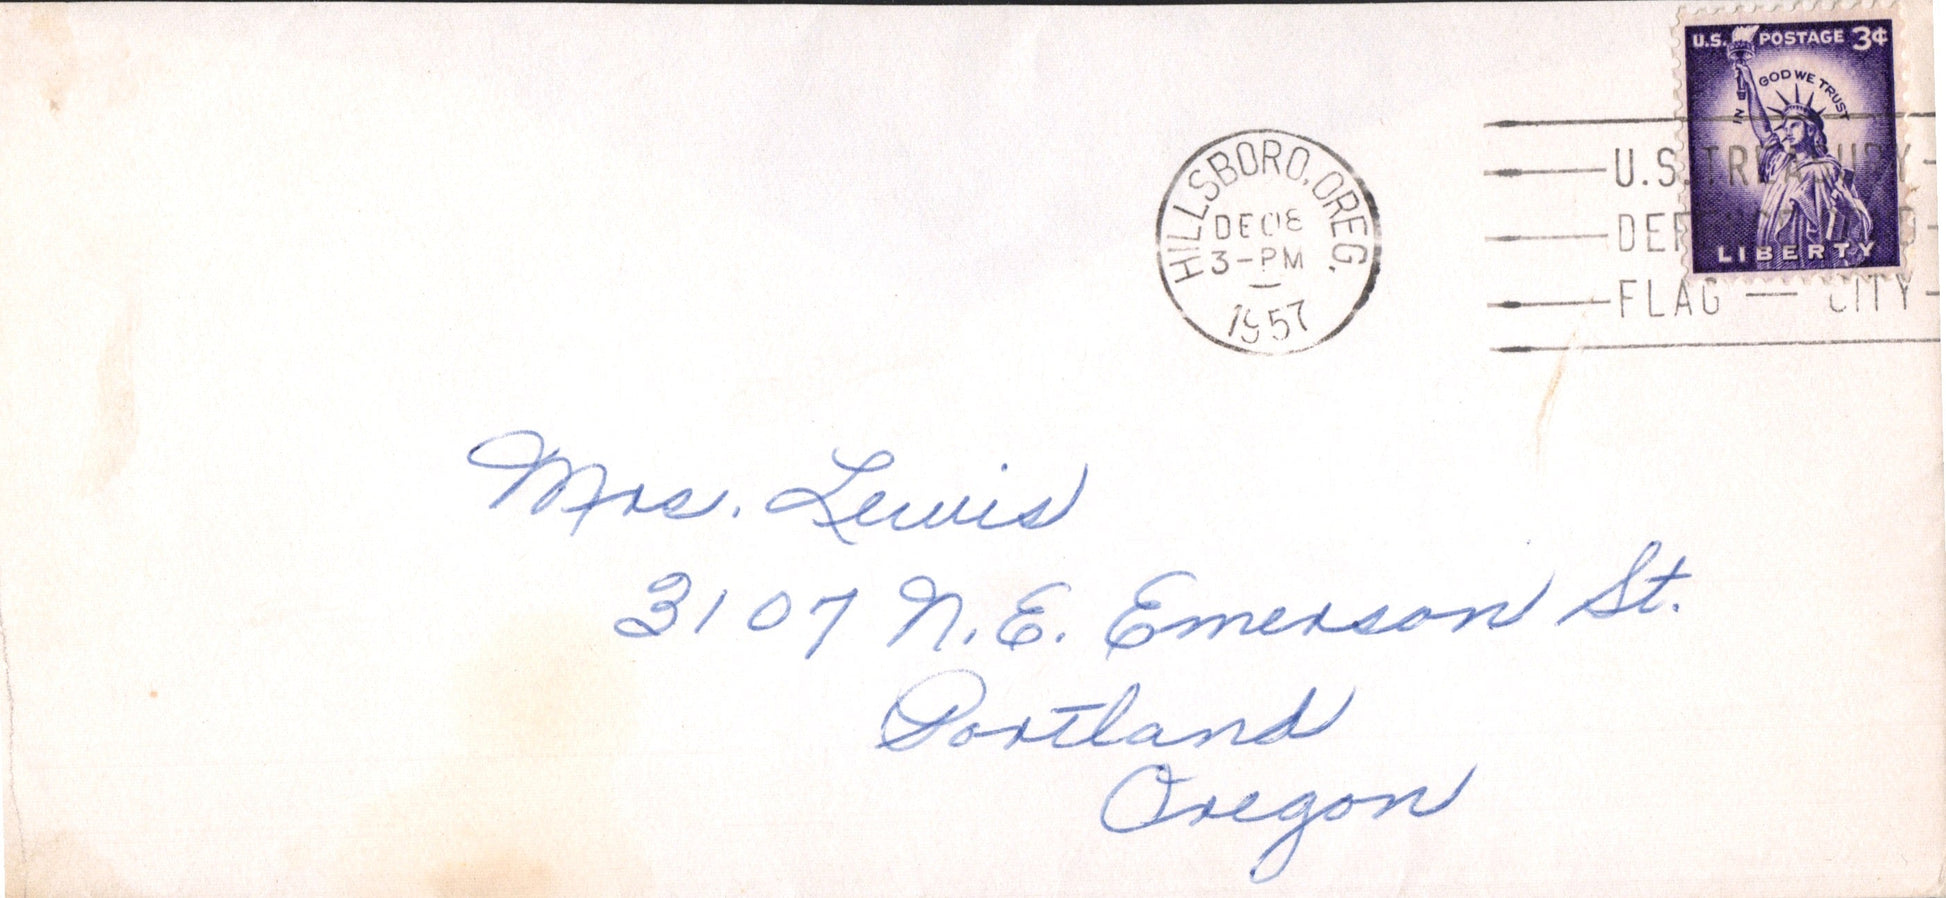 U.S. POSTAGE 3¢
IN GOD WE TRUST
LIBERTY
HILLSBORO, OREG.
DEC 8
3-PM
1957
U.S. TREASURY
FLAG — CITY
Mrs. Lewis
3107 N.E. Emerson St.
Portland
Oregon